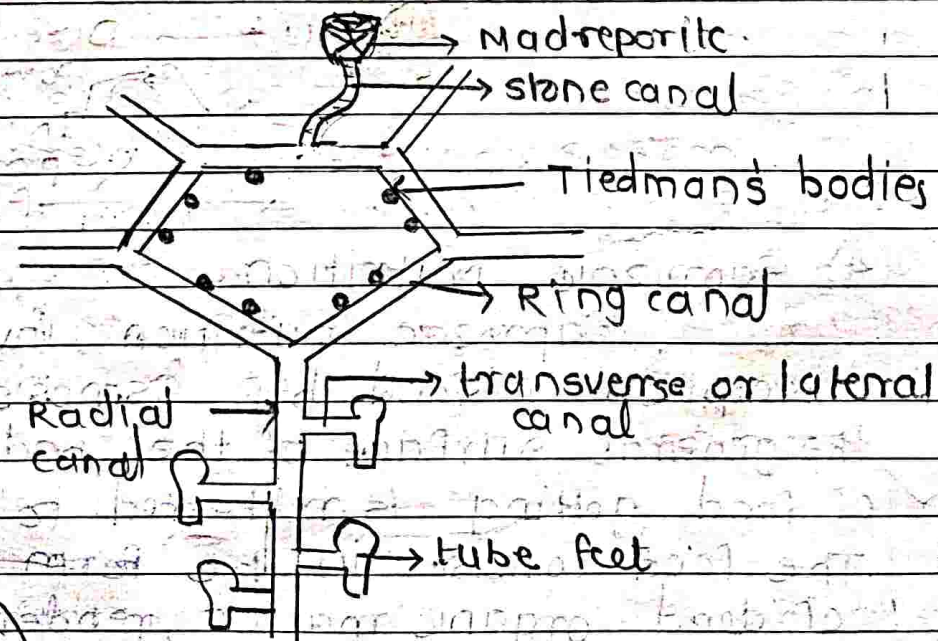 Madreporite.
stone canal
Tiedman's bodies
Ring canal
transverse or lateral
canal
Radial
canal
tube feet